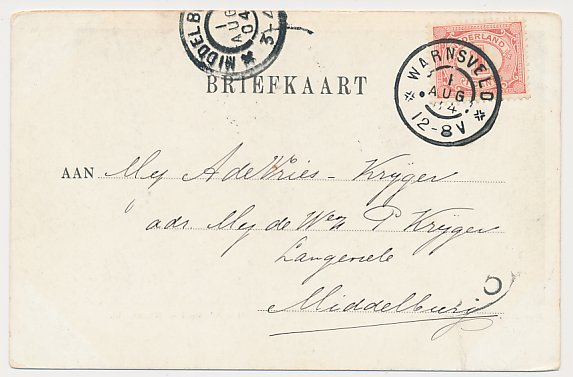 MIDDELB
1
AUG
04
3-4
NEDERLAND
WARNSVELD
1
AUG
04
12-8V
BRIEFKAART
AAN Mej A de Vries - Krijger
adr Mej de Wed P Krijger
Langeviele
Middelburg